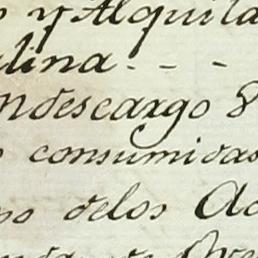 y Alquila
lina - - -
ndescargo
consumidas
os delos Ac